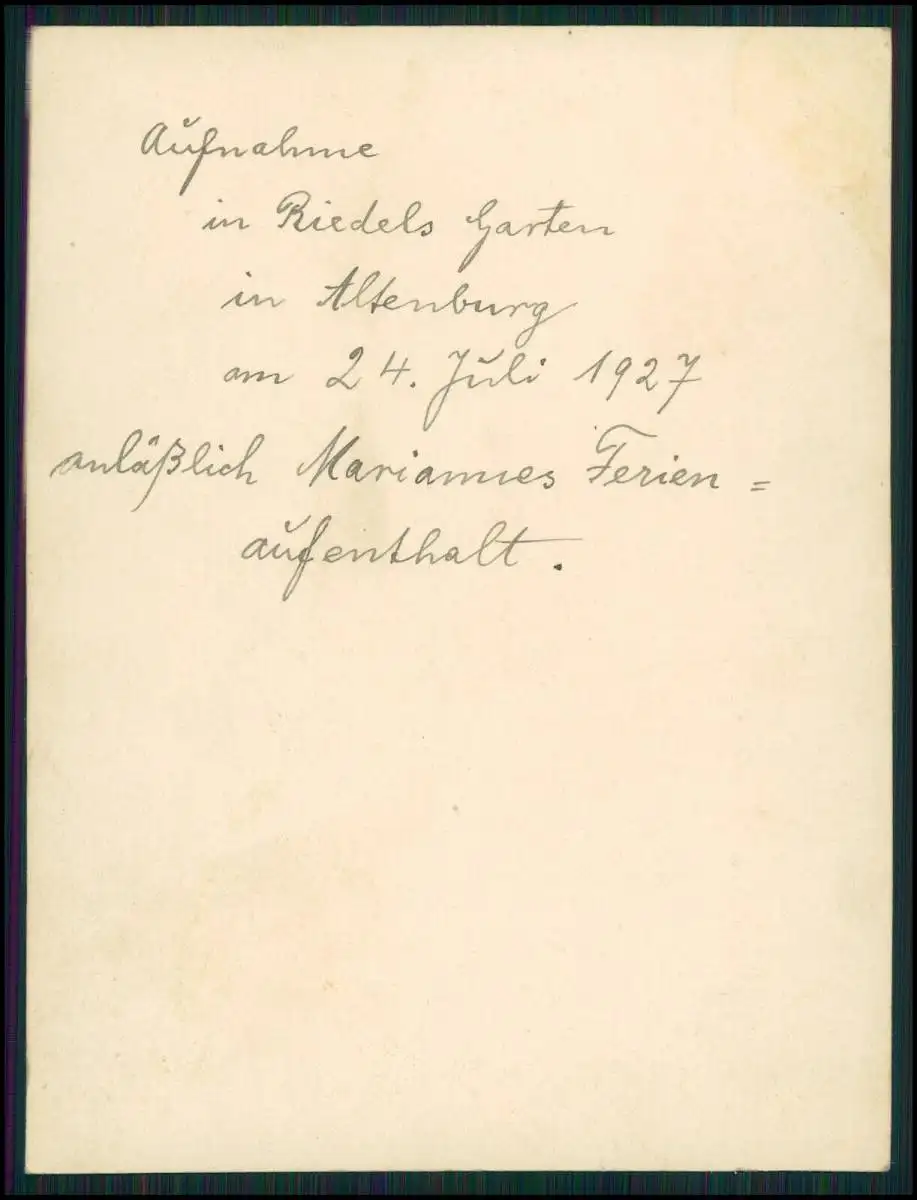 Aufnahme
in Riedels Garten
in Altenburg
am 24. Juli 1927
anläßlich Mariannes Ferien=
aufenthalt.